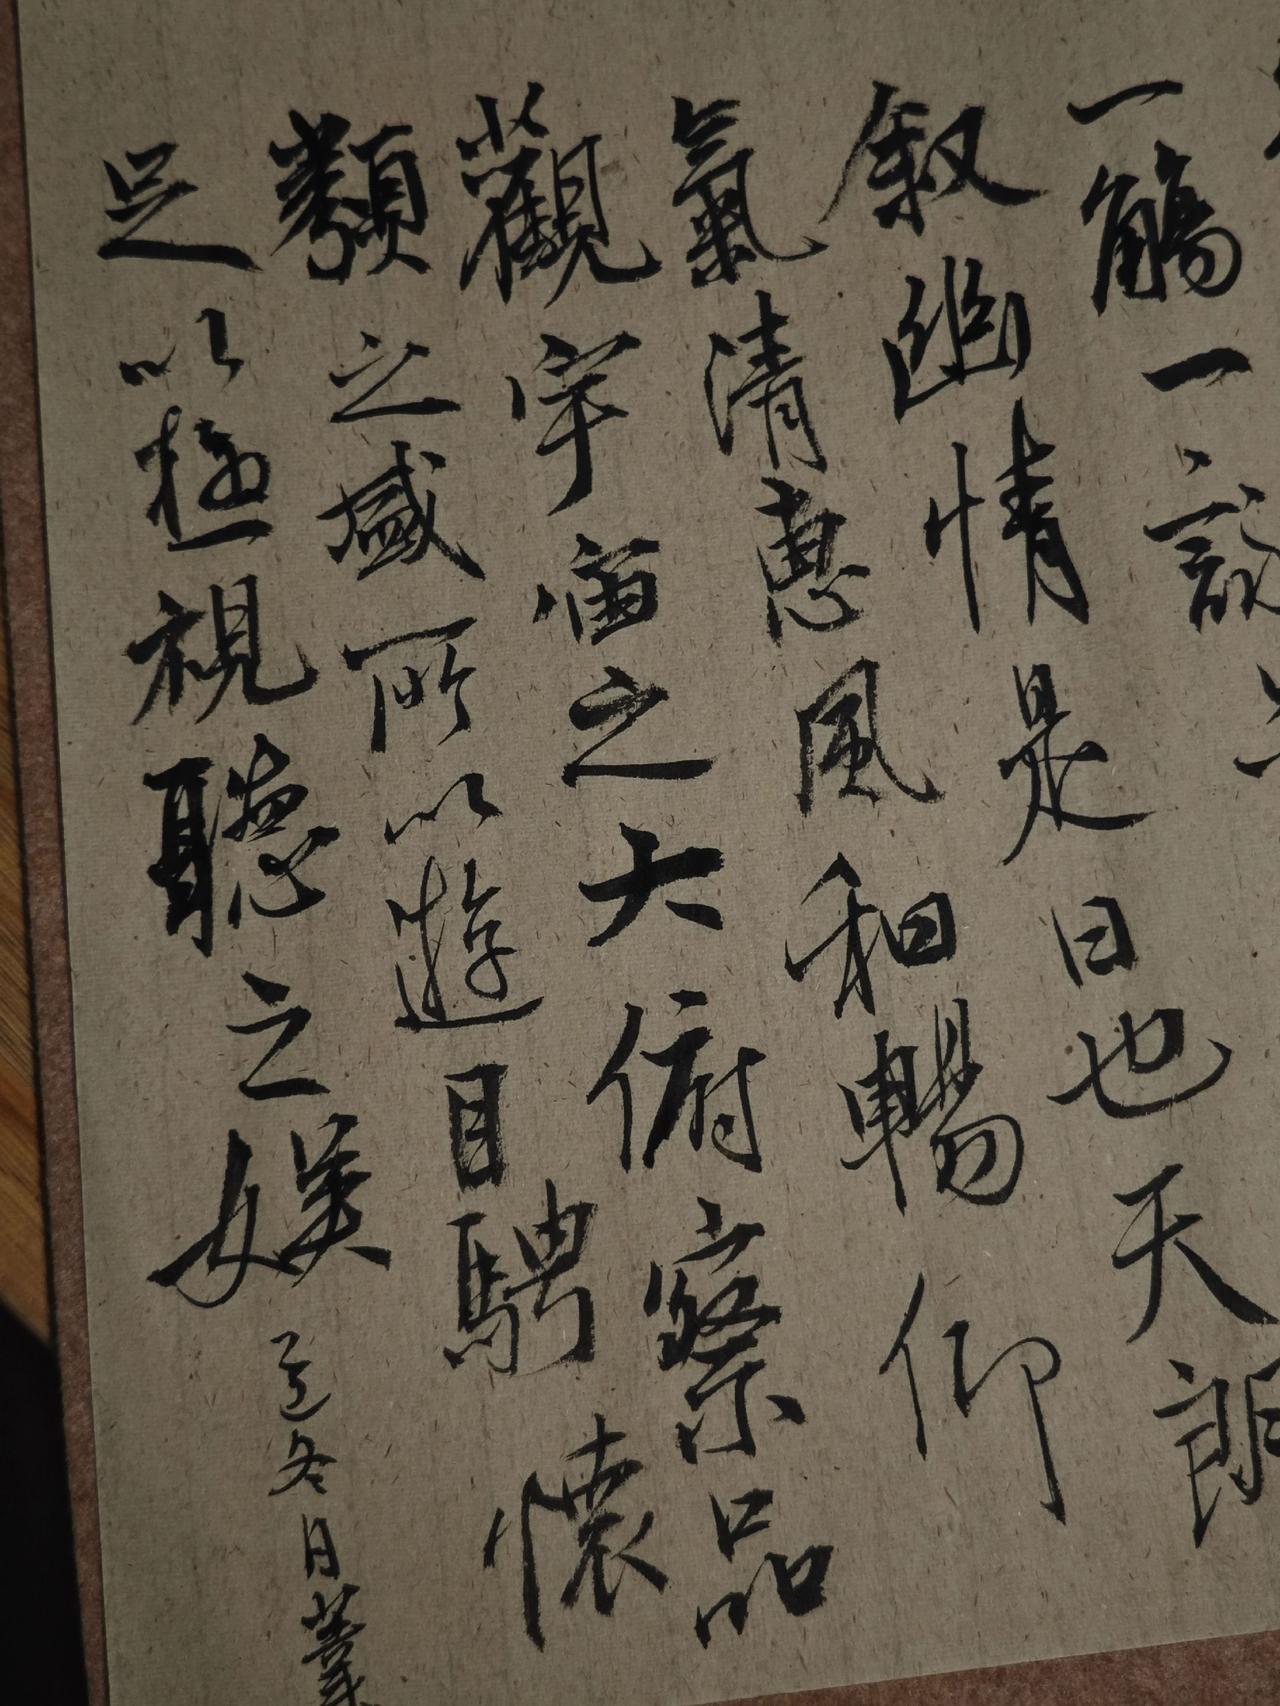 一觴一詠
敘幽情是日也天朗
氣清惠風和暢仰
觀宇宙之大俯察品
類之盛所以遊目騁懷
足以極視聽之娛
冬日